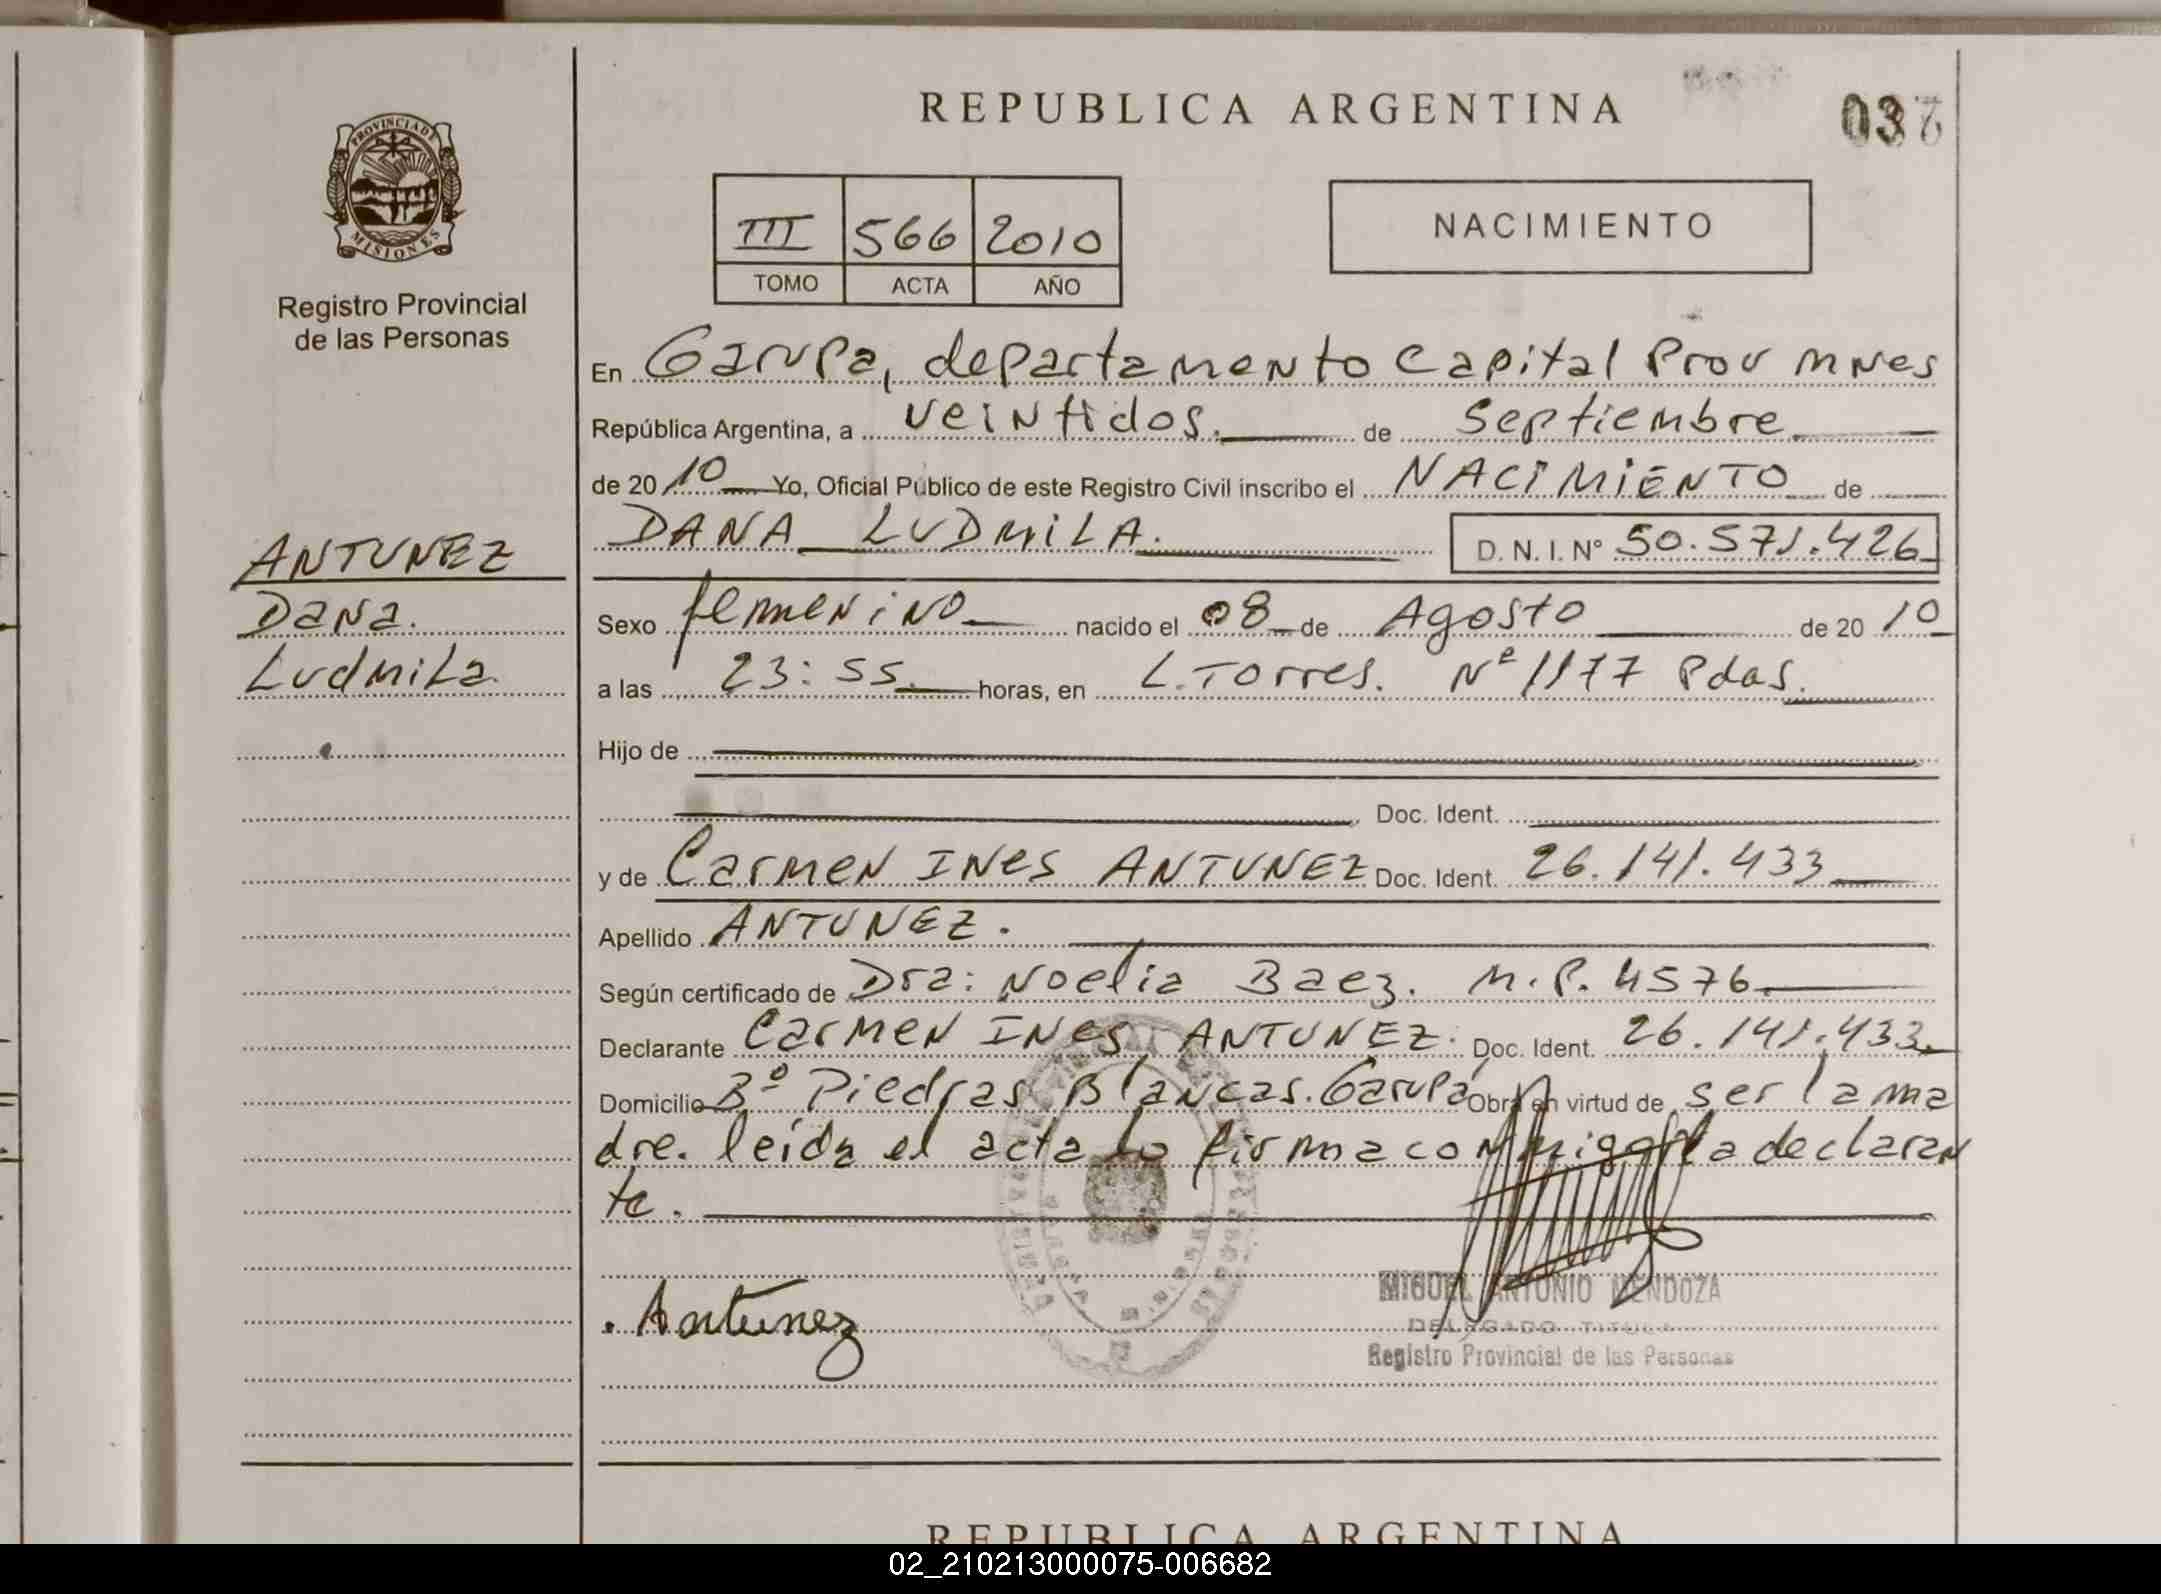 REPUBLICA ARGENTINA
037
PROVINCIA DE
MISIONES
Registro Provincial
de las Personas
III 566 2010
TOMO ACTA AÑO
NACIMIENTO
En Garupa, departamento Capital Prov Mnes
República Argentina, a veintidos. de Septiembre
de 20 10 Yo, Oficial Público de este Registro Civil inscribo el NACIMIENTO de
DANA LUDMILA. D. N. I. N° 50.571.426
ANTUNEZ
Dana.
Ludmila
Sexo femenino nacido el 08 de Agosto de 20 10
a las 23:55. horas, en L. Torres. Nº 1177 Pdas.
Hijo de
Doc. Ident.
y de Carmen Ines ANTUNEZ Doc. Ident. 26.141.433
Apellido ANTUNEZ.
Según certificado de Dra: Noelia Baez. M.P. 4576
Declarante Carmen Ines ANTUNEZ. Doc. Ident. 26.141.433.
Domicilio Bº Piedras Blancas. Garupa Obra en virtud de ser la ma
dre. leída el acta la firma conmigo la declaran
te.
Antunez
MIGUEL ANTONIO MENDOZA
DELEGADO TITULAR
Registro Provincial de las Personas
REPUBLICA ARGENTINA
02_210213000075-006682